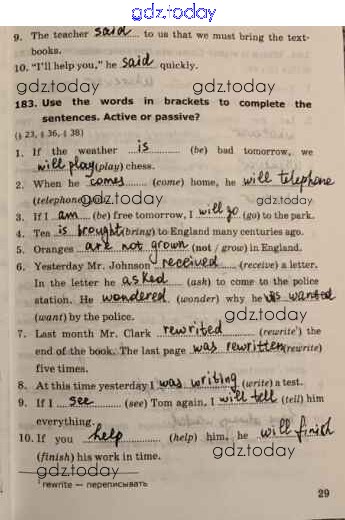 gdz.today
9. The teacher said to us that we must bring the text-
books.
10. "I'll help you," he said quickly.
gdz.today gdz.today
183. Use the words in brackets to complete the
sentences. Active or passive?
(§ 23, § 36, § 38)
gdz.today gdz.today
1. If the weather is (be) bad tomorrow, we
will play (play) chess.
2. When he comes (come) home, he will telephone
(telephone)
gdz.today gdz.today
3. If I am (be) free tomorrow, I will go (go) to the park.
4. Tea is brought (bring) to England many centuries ago.
5. Oranges are not grown (not / grow) in England.
6. Yesterday Mr. Johnson received (receive) a letter.
In the letter he asked (ask) to come to the police
station. He wondered (wonder) why he is wanted
(want) by the police.
gdz.today gdz.today
7. Last month Mr. Clark rewrited (rewrite¹) the
end of the book. The last page was rewritten (rewrite)
five times.
gdz.today gdz.today
8. At this time yesterday I was writing (write) a test.
9. If I see (see) Tom again, I will tell (tell) him
everything.
gdz.today gdz.today
10. If you help (help) him, he will finish
(finish) his work in time.
gdz.today gdz.today
¹ rewrite — переписывать
29
gdz.today